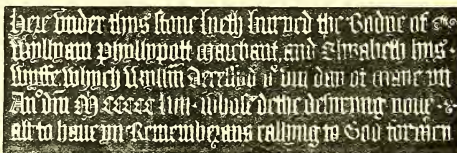 Here under thys stone lieth buryed the Bodye of
Wyllyam Phyllypott Marchant, and Elysabeth hys
wyffe whych Willm decessyd ye viii day of maye yn
Ano dni M ccccc liii whose dethe desiryng nowe
all to have yn Remembrans callyng to God for men